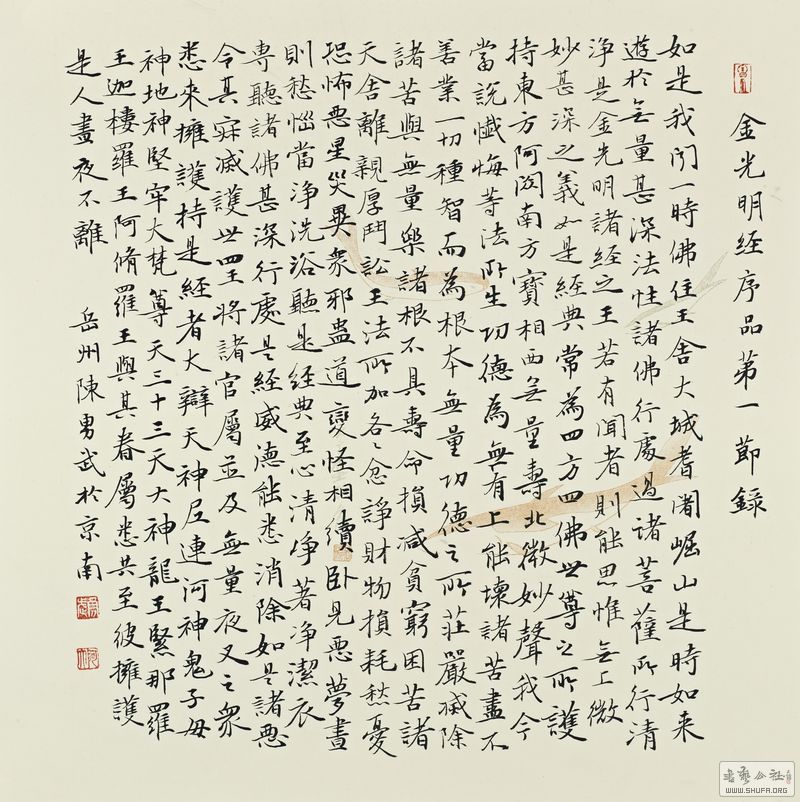 金光明经序品第一節錄
如是我闻一時佛住王舍大城耆闍崛山是時如来
遊於無量甚深法性諸佛行處過諸菩薩所行清
淨是金光明諸经之王若有闻者則能思惟無上微
妙甚深之義如是經典常為四方四佛世尊之所護
持東方阿閦南方寶相西無量壽北微妙聲我今
當說懺悔等法所生功德為無有上能壞諸苦盡不
善業一切種智而為根本無量功德之所莊嚴滅除
諸苦與無量樂諸根不具壽命損減貧窮困苦諸
天舍離親厚鬥訟王法所加各各忿諍財物損耗愁憂
恐怖惡星災異衆邪蛊道變怪相續卧見惡夢晝
則愁惱當净洗浴聽是經典至心清净著净潔衣
專聽諸佛甚深行處是經威德能悉消除如是諸惡
令其寂滅護世四王將諸官屬並及無量夜叉之衆
悉来擁護持是經者大辯天神尼連河神鬼子母
神地神堅牢大梵尊天三十三天大神龍王緊那羅
王迦樓羅王阿脩羅王與其眷屬悉共至彼擁護
是人晝夜不離 岳州陳勇武於京南
書藝公社
WWW.SHUFA.ORG